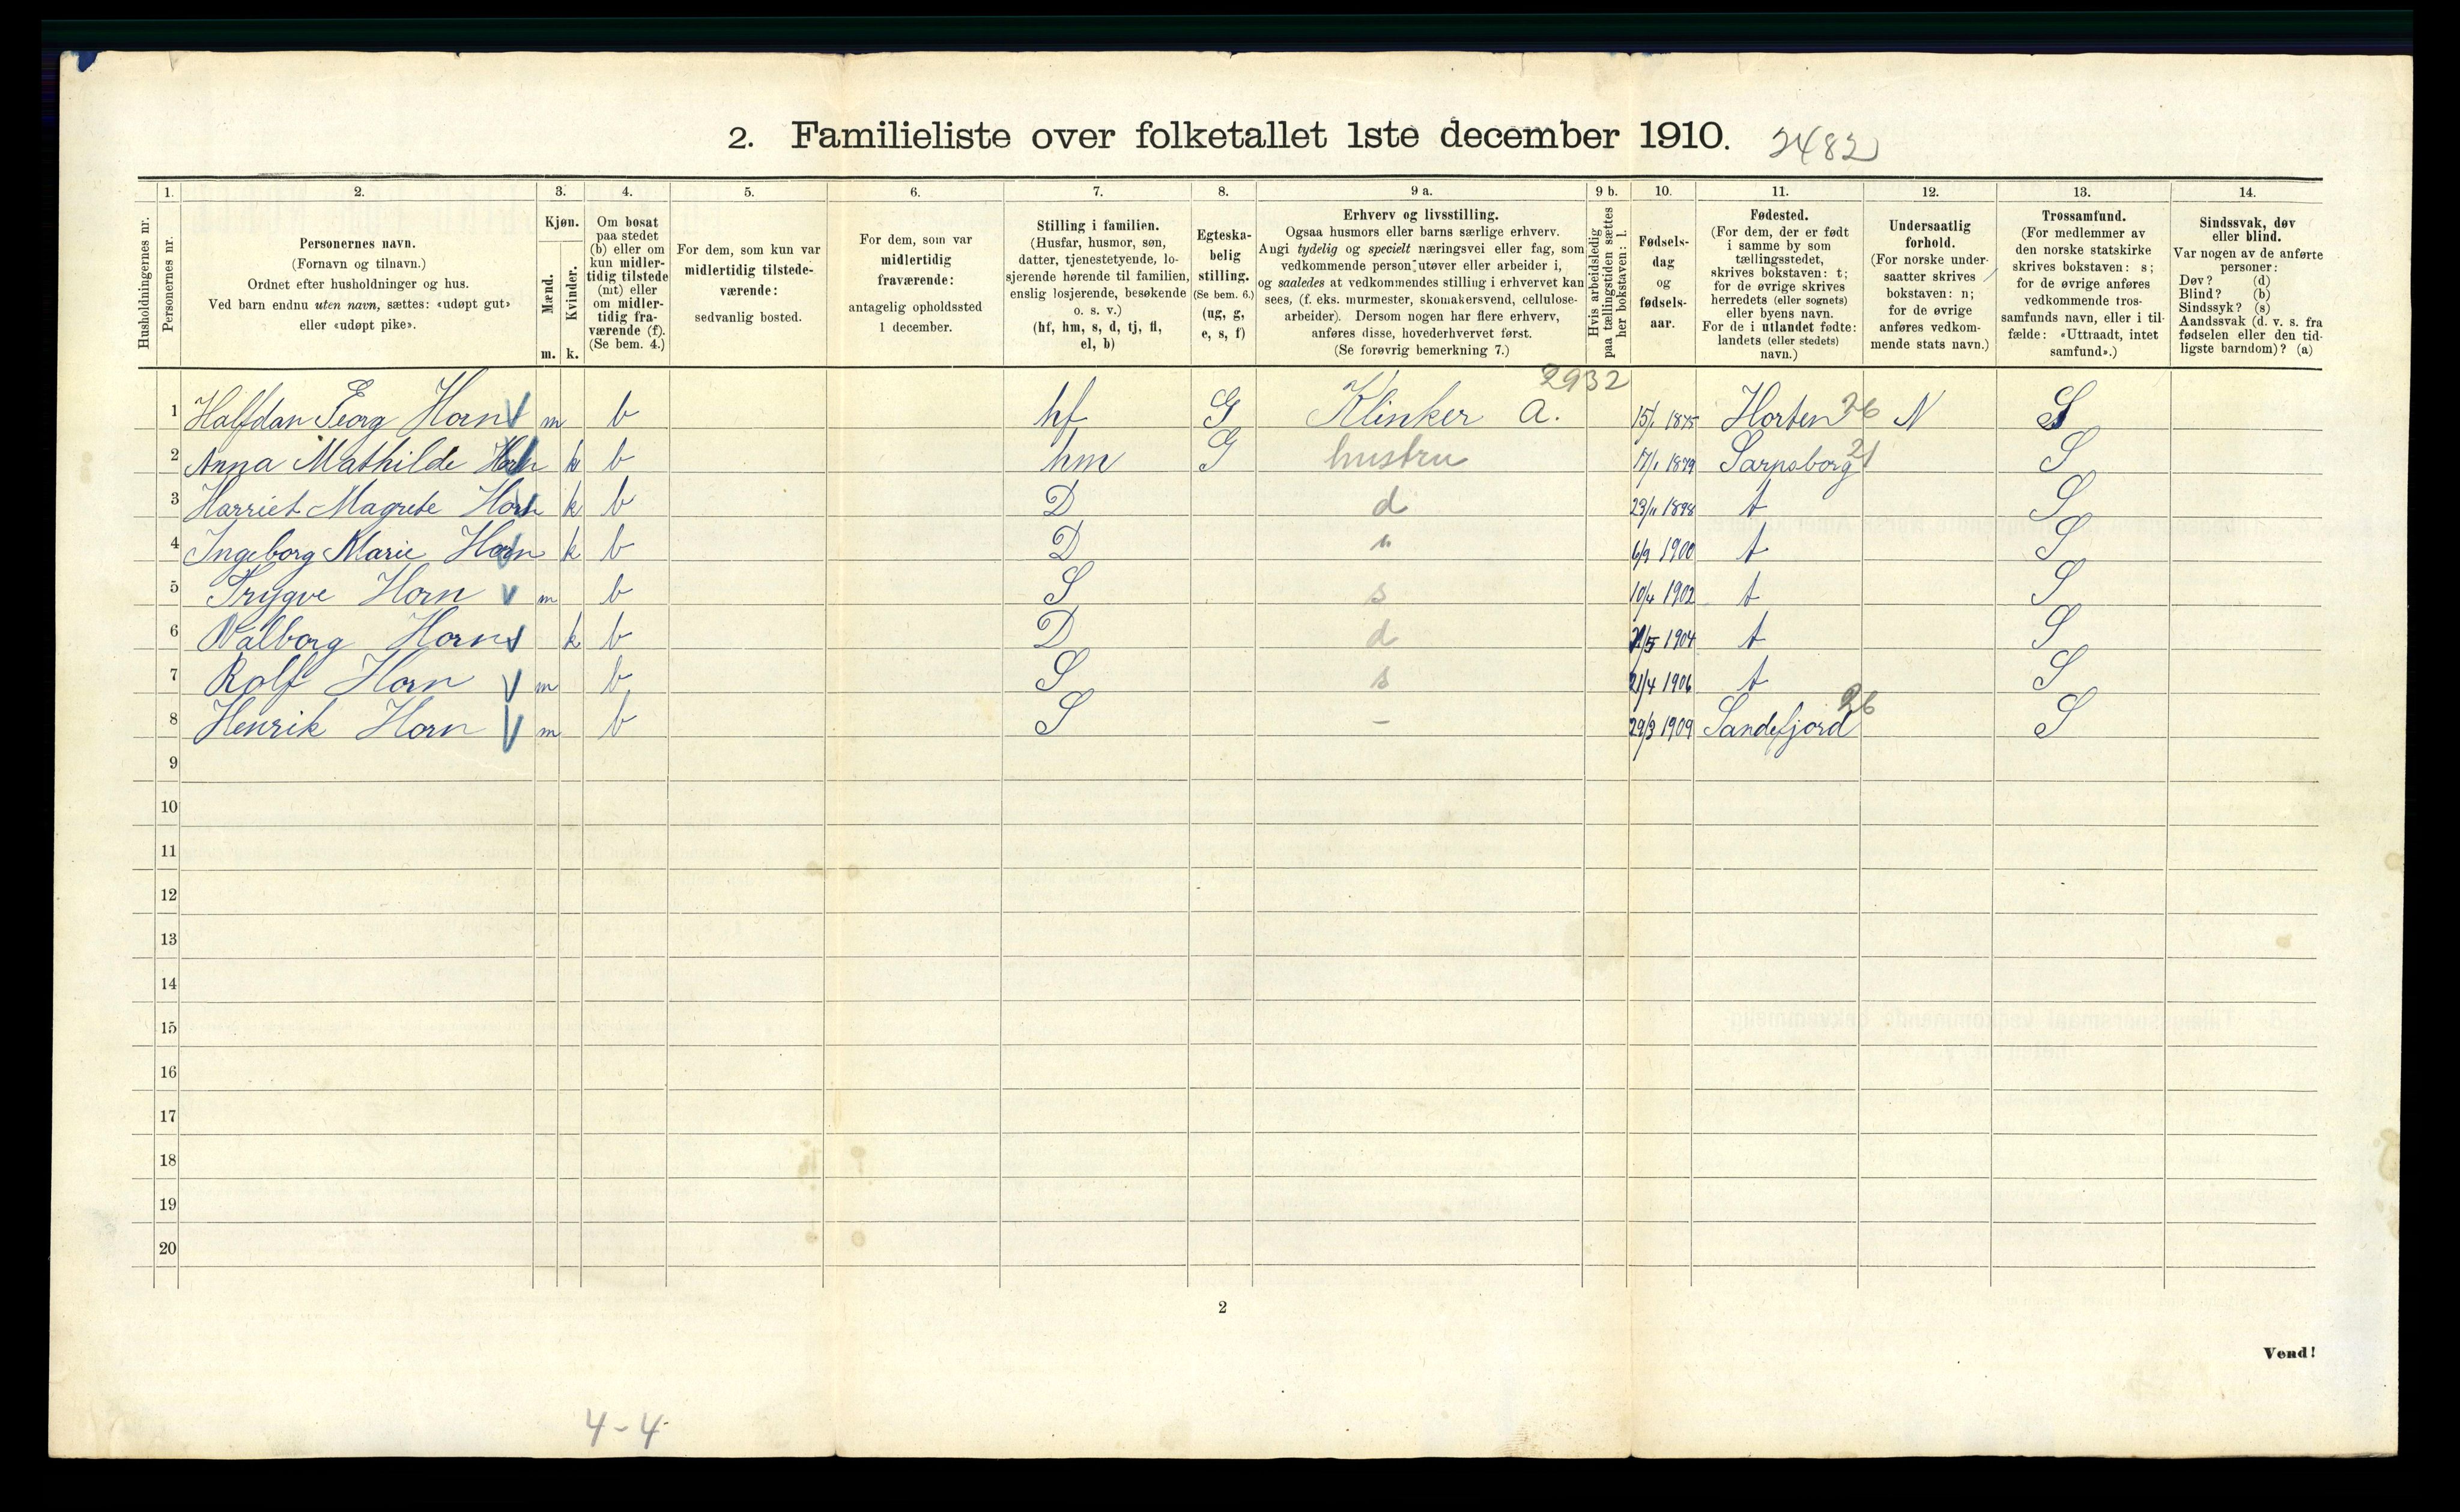 2. Familieliste over folketallet 1ste december 1910. 2482
1. 2. 3. 4. 5. 6. 7. 8. 9 a. 9 b. 10. 11. 12. 13. 14.
Husholdningernes nr.
Personernes nr.
Personernes navn.
(Fornavn og tilnavn.)
Ordnet efter husholdninger og hus.
Ved barn endnu uten navn, sættes: «udøpt gut»
eller «udøpt pike».
Kjøn.
Mænd.
Kvinder.
m. k.
Om bosat
paa stedet
(b) eller om
kun midler-
tidig tilstede
(mt) eller
om midler-
tidig fra-
værende (f).
(Se bem. 4.)
For dem, som kun var
midlertidig tilstede-
værende:
sedvanlig bosted.
For dem, som var
midlertidig
fraværende:
antagelig opholdssted
1 december.
Stilling i familien.
(Husfar, husmor, søn,
datter, tjenestetyende, lo-
sjerende hørende til familien,
enslig losjerende, besøkende
o. s. v.)
(hf, hm, s, d, tj, fl,
el, b)
Egteska-
belig
stilling.
(Se bem. 6.)
(ug, g,
e, s, f)
Erhverv og livsstilling.
Ogsaa husmors eller barns særlige erhverv.
Angi tydelig og specielt næringsvei eller fag, som
vedkommende person utøver eller arbeider i,
og saaledes at vedkommendes stilling i erhvervet kan
sees, (f. eks. murmester, skomakersvend, cellulose-
arbeider). Dersom nogen har flere erhverv,
anføres disse, hovederhvervet først.
(Se forøvrig bemerkning 7.)
Hvis arbeidsledig
paa tællingstiden sættes
her bokstaven: l.
Fødsels-
dag
og
fødsels-
aar.
Fødested.
(For dem, der er født
i samme by som
tællingsstedet,
skrives bokstaven: t;
for de øvrige skrives
herredets (eller sognets)
eller byens navn.
For de i utlandet fødte:
landets (eller stedets)
navn.)
Undersaatlig
forhold.
(For norske under-
saatter skrives
bokstaven: n;
for de øvrige
anføres vedkom-
mende stats navn.)
Trossamfund.
(For medlemmer av
den norske statskirke
skrives bokstaven: s;
for de øvrige anføres
vedkommende tros-
samfunds navn, eller i til-
fælde: «Uttraadt, intet
samfund».)
Sindssvak, døv
eller blind.
Var nogen av de anførte
personer:
Døv? (d)
Blind? (b)
Sindssyk? (s)
Aandssvak (d. v. s. fra
fødselen eller den tid-
ligste barndom)? (a)
2932
1 Halfdan Georg Horn m b hf G Klinker a. 15/1 1875 Horten 26 N S
2 Anna Mathilde Horn k b hm G hustru 17/1 1879 Sarpsborg 21 S
3 Harriet Magrete Horn k b D d 23/11 1898 t S
4 Ingeborg Marie Horn k b D " 6/9 1900 t S
5 Trygve Horn m b S s 10/4 1902 t S
6 Valborg Horn k b D d /5 1904 t S
7 Rolf Horn m b S s 21/4 1906 t S
8 Henrik Horn m b S – 29/3 1909 Sandefjord 26 S
9
10
11
12
13
14
15
16
17
18
19
20
2
Vend!
4-4